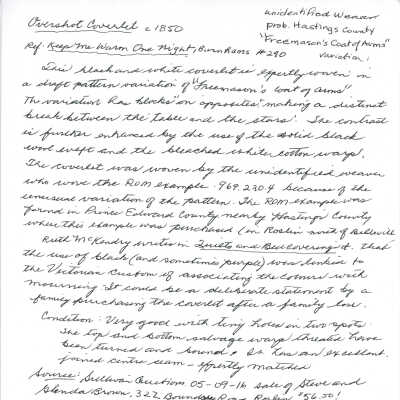 Overshot Coverlet c 1850
unidentified Weaver
prob. Hastings County
"Freemason's Coat of Arms"
variation!
Ref. Keep Me Warm One Night, Burnham #290
This black and white coverlet is expertly woven in
a draft pattern variation of "Freemason's Coat of Arms"
The variation has blocks "on opposites" making a distinct
break between the table and the stars. The contrast
is further enhanced by the use of the solid black
wool weft and the bleached white cotton warp.
The coverlet was woven by the unidentified weaver
who wove the ROM example 969.230.4 because of the
unusual variation of the pattern. The ROM example was
found in Prince Edward County nearby Hastings County
where this example was purchased (in Roslin north of Belleville
Ruth McKendry writes in Quilts and Bedcoverings that
the use of black (and sometimes purple) was linked to
the Victorian custom of associating the colours with
mourning It could be a deliberate statement by a
family purchasing the coverlet after a family loss.
Condition: Very good with tiny holes in two spots
The top and bottom salvage warp threads have
been turned and bound. It has an excellent
joined centre seam - expertly matched
Source: Sullivan Auction 05-09-16 sale of Steve and
Glenda Brown, 322 Boundary Road, Roslin $56.50!